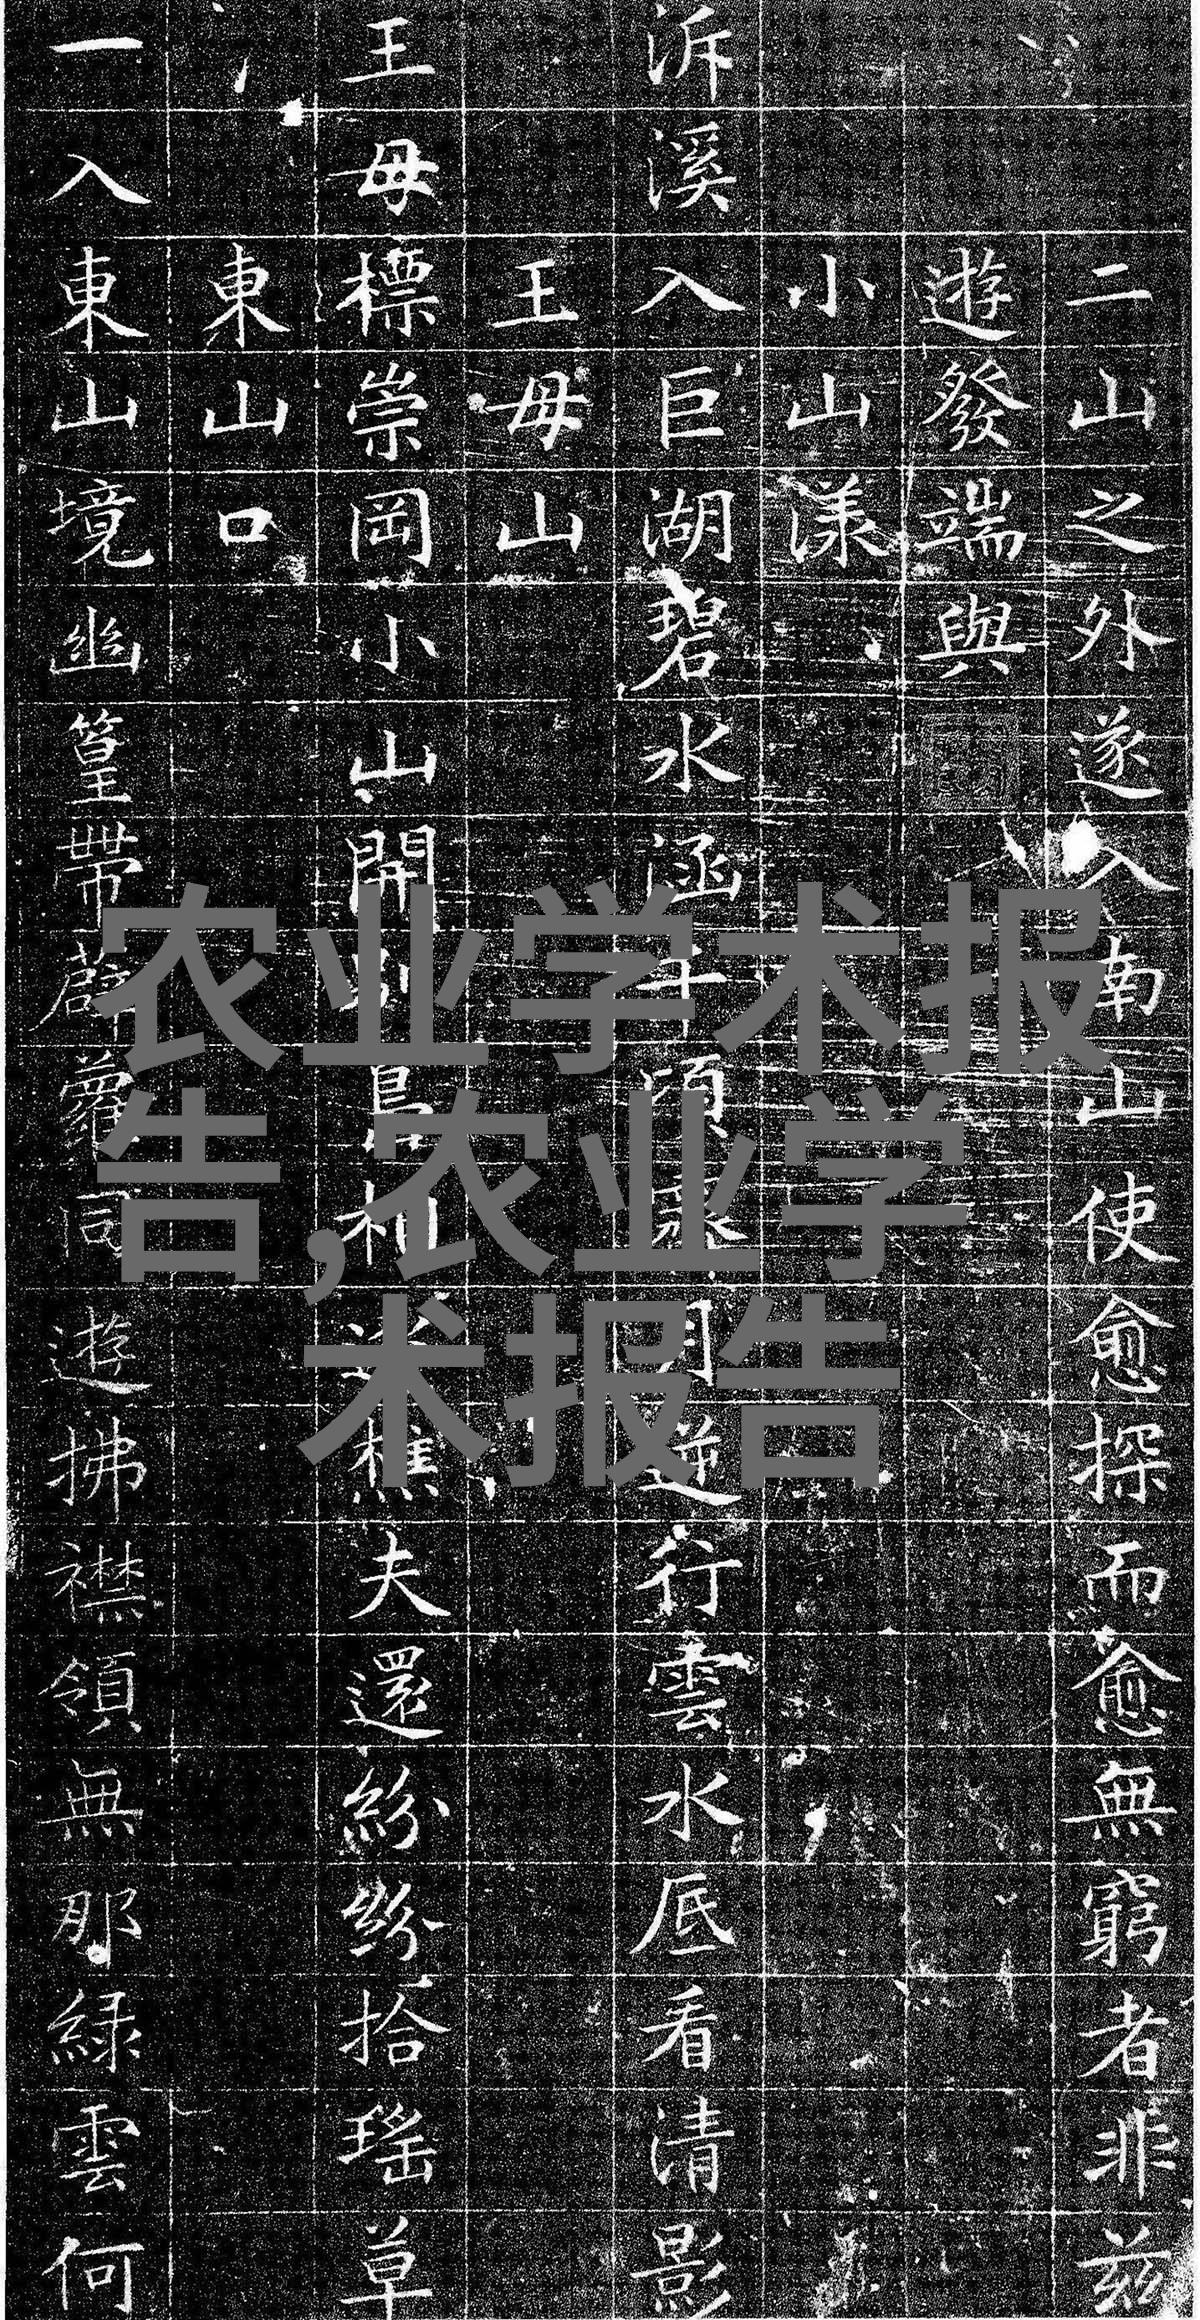 二山之外遂入南山使愈探而愈無窮者非茲
遊發端與
小山漾
泝溪入巨湖碧水涵千頃月逆行雲水底看清影
王母山
王母標崇岡小山開別島相樵夫還紛紛拾瑤草
東山口
一入東山境幽篁帶薜蘿同遊拂襟領無那綠雲何
农业学术报
告,农业学
术报告